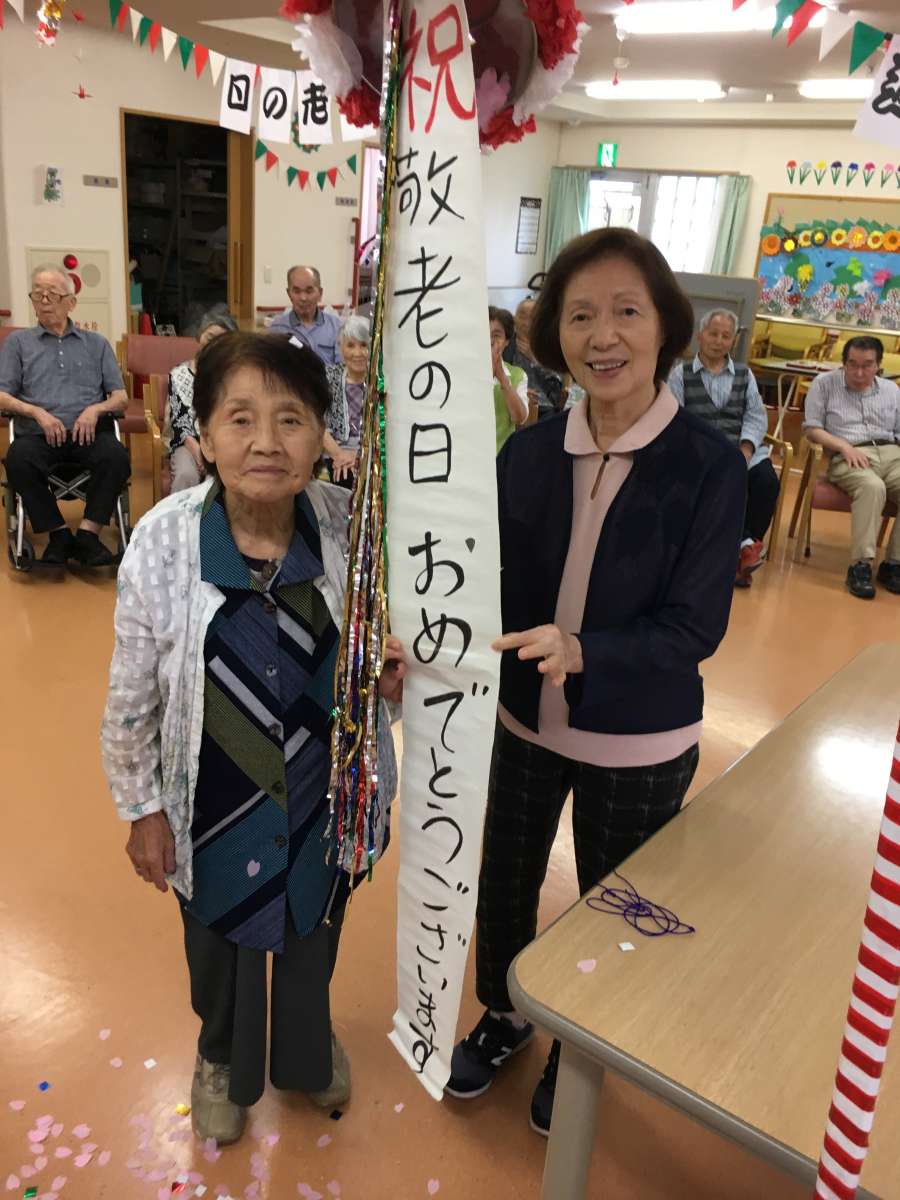 祝
敬老の日 おめでとうございます
日の老
N